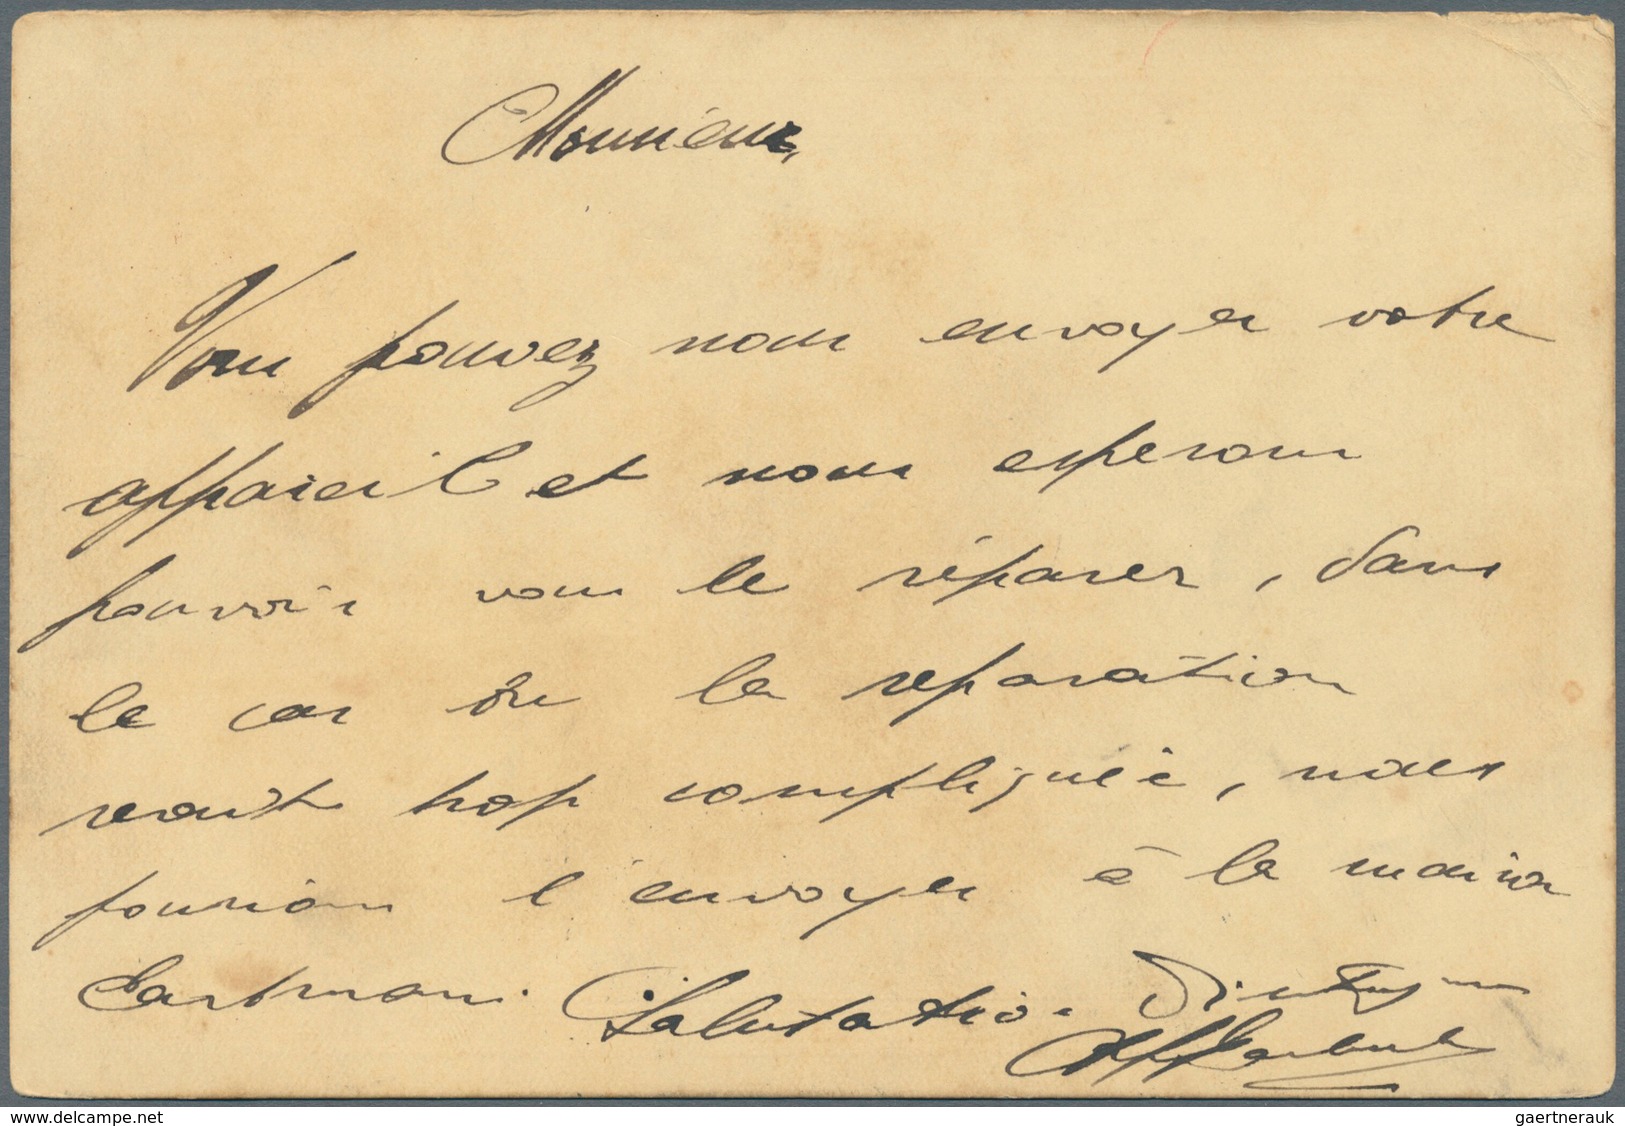 Monsieur,
Vous pouvez nous envoyer votre
appareil et nous esperons
pouvoir vous le réparer, dans
le cas où la reparation
serait trop compliquée, nous
pourrions l'envoyer à la maison
Salutations
www.delcampe.net
gaertnerauk